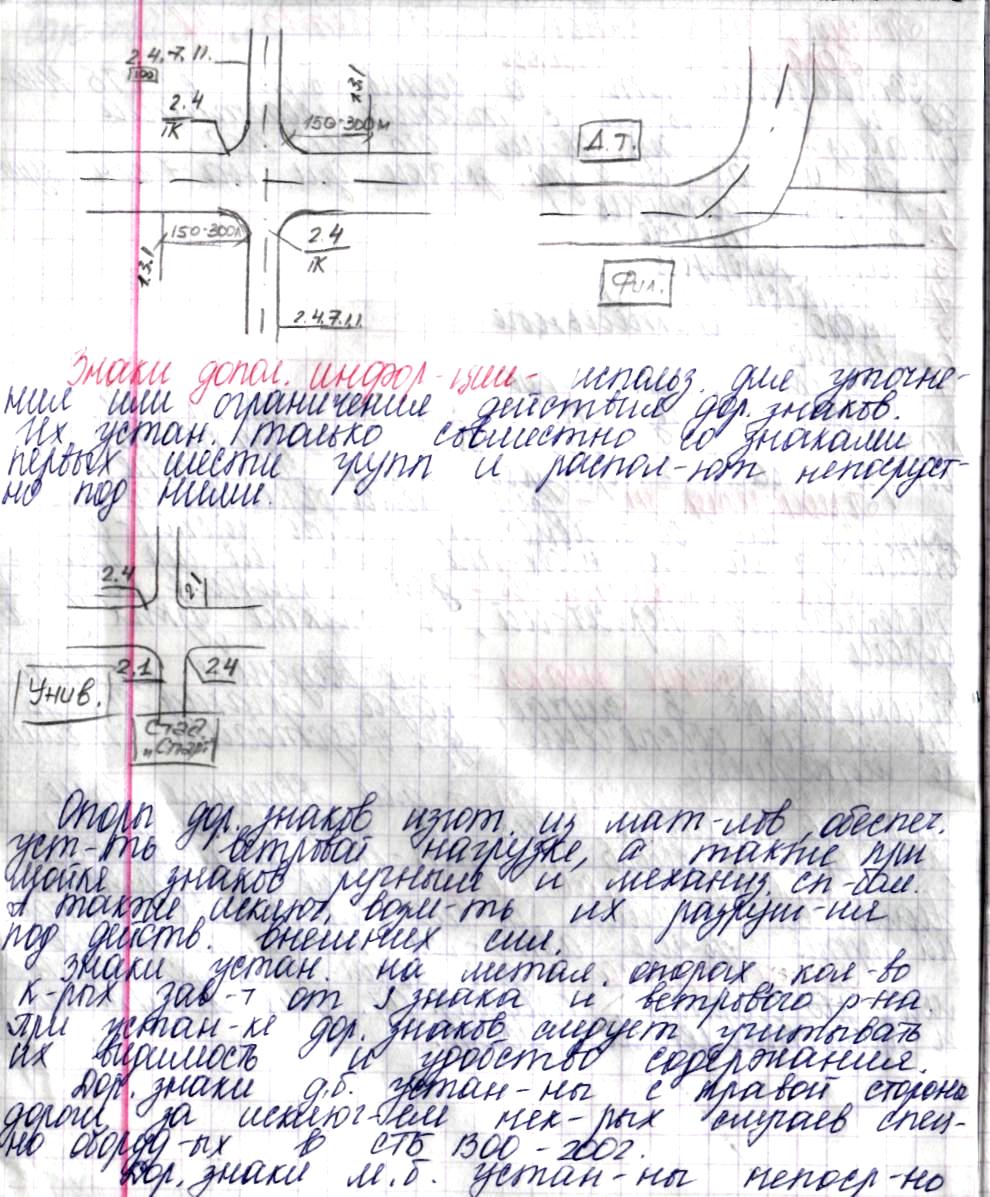 2.4.7.1.1.
100
2.4
1К
1.3.1
150-300м
150-300м
1.3.1
2.4
1К
2.4.7.1.1
Д.Т.
Фил.
Знаки допол. инфор-ции - использ. для уточне-
ния или ограничения действия дор. знаков.
Их устан. только совместно со знаками
первых шести групп и распол-ют непосредст-
но под ними.
2.4
2.1
2.1
2.4
Унив.
Стад.
"Старт"
Опоры дор. знаков изгот. из мат-лов, обеспеч.
уст-ть ветровой нагрузке, а также при
мойке знаков ручным и механиз. сп-бом.
А также исключ. возм-ть их разруш-ния
под действ. внешних сил.
Знаки устан. на метал. опорах кол-во
к-рых зав-т от S знака и ветрового р-на.
При устан-ке дор. знаков следует учитывать
их видимость и удобство содержания.
Дор. знаки д.б. устан-ны с правой стороны
дороги за исключ-ем нек-рых случаев спец-
но оборуд-ых в СТБ 1300-2002.
Дор. знаки м.б. устан-ны непоср-но